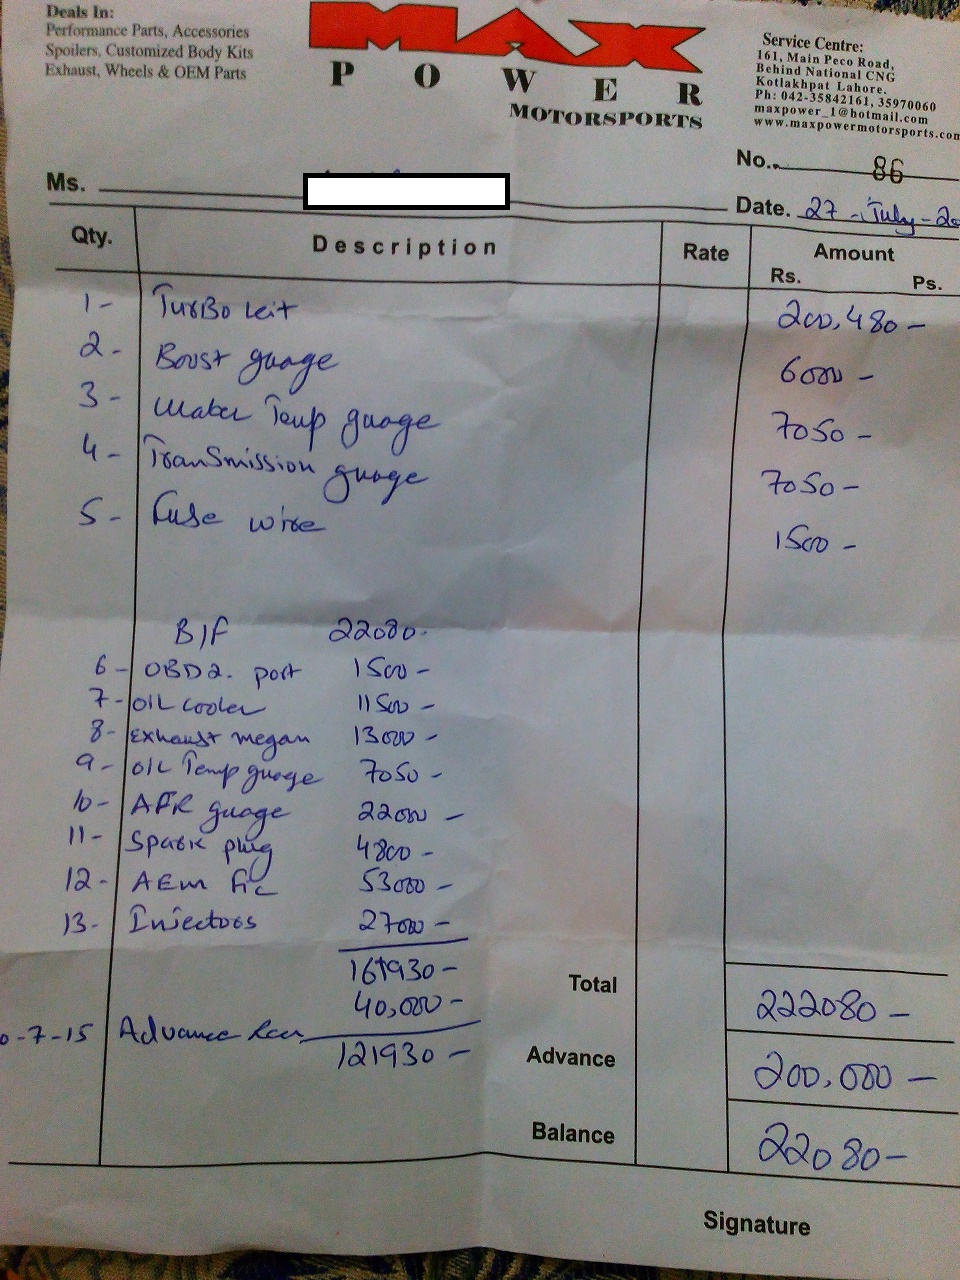 Deals In:
Performance Parts, Accessories
Spoilers, Customized Body Kits
Exhaust, Wheels & OEM Parts
MAX
POWER
MOTORSPORTS
Service Centre:
161, Main Peco Road,
Behind National CNG
Kotlakhpat Lahore.
Ph: 042-35842161, 35970060
maxpower_1@hotmail.com
www.maxpowermotorsports.com
No. 86
Ms.
Date. 27-July-20
Qty. Description Rate Amount
Rs. Ps.
1- TurBo kit 200,480-
2- Boost guage 6000-
3- Water Temp guage 7050-
4- TranSmission guage 7050-
5- Fuse wire 1500-
B/F 22080-
6- OBD2. port 1500-
7- OIL cooler 11500-
8- Exhaust megan 13000-
9- OIL Temp guage 7050-
10- AFR guage 22000-
11- Spark plug 4800-
12- AEM fic 53000-
13- Injectors 27000-
161930-
40,000-
0-7-15 Advance
121930-
Total 222080-
Advance 200,000-
Balance 22080-
Signature